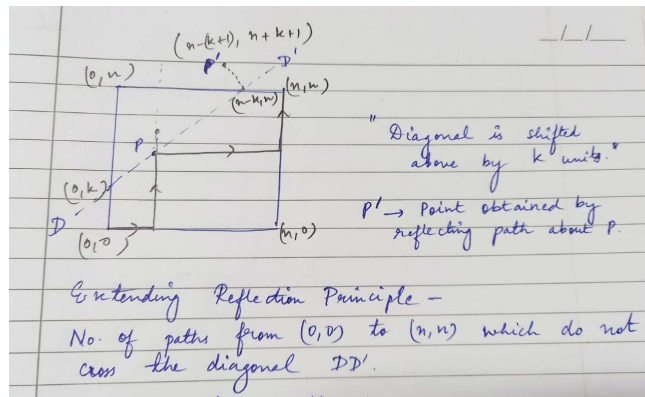 (n-(k+1), n+k+1)
_/_/_
P' D'
(0,n) (n,n)
(n-k,n)
P
"Diagonal is shifted
above by k units."
(0,k)
P' → Point obtained by
reflecting path about P.
D
(0,0) (n,0)
Extending Reflection Principle -
No. of paths from (0,0) to (n,n) which do not
cross the diagonal DD'.